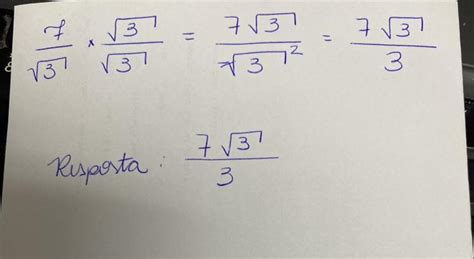 7/√3 × √3/√3 = 7√3/√3² = 7√3/3
Resposta : 7√3/3